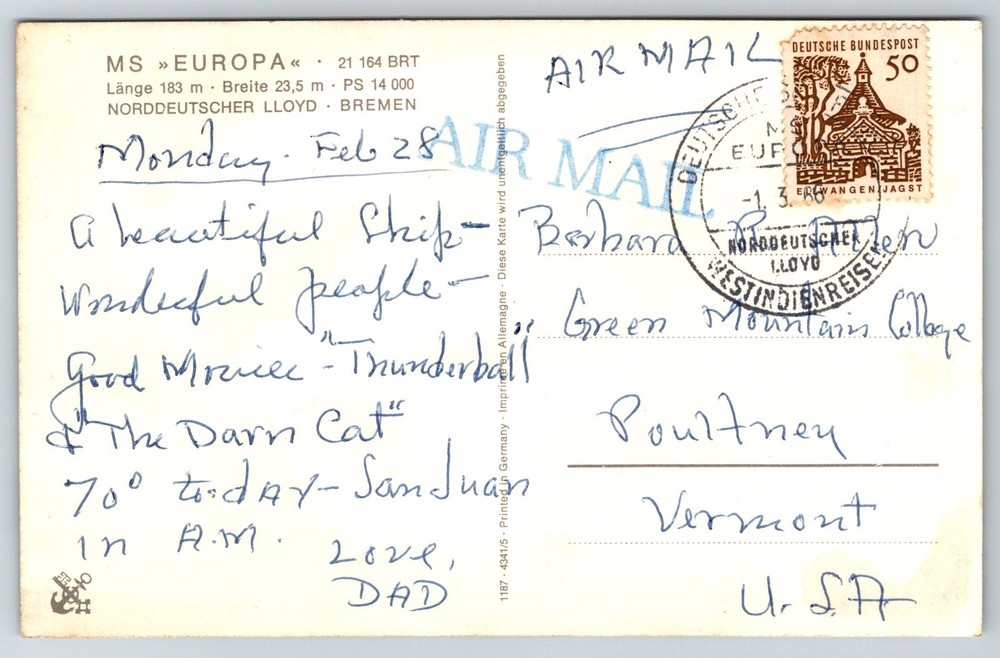 MS »EUROPA« · 21 164 BRT
Länge 183 m · Breite 23,5 m · PS 14 000
NORDDEUTSCHER LLOYD · BREMEN
Monday. Feb 28
A beautiful Ship—
Wonderful people—
Good Movies - "Thunderball"
& "The Darn Cat"
70° to-dAY— San Juan
in A.M.
Love,
DAD
1187 · 4341/5 · Printed in Germany · Imprimé en Allemagne · Diese Karte wird unentgeltlich abgegeben
AIR MAIL
AIR MAIL
DEUTSCHE BUNDESPOST
50
ELLWANGEN/JAGST
DEUTSCHE
MS
EUROPA
-1. 3. 66
NORDDEUTSCHER
LLOYD
WESTINDIENREISEN
Barbara
Green Mountain College
Poultney
Vermont
U.S.A